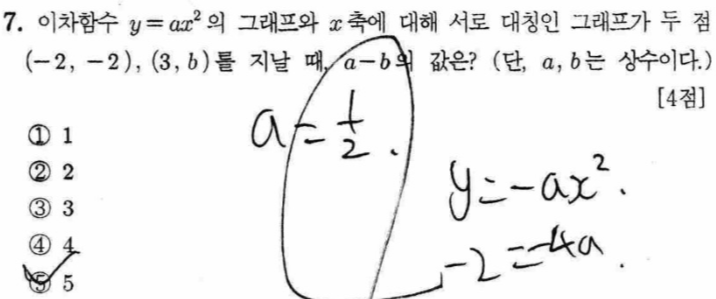 7. 이차함수 y=ax² 의 그래프와 x축에 대해 서로 대칭인 그래프가 두 점
(-2, -2), (3, b)를 지날 때, a-b의 값은? (단, a, b는 상수이다.)
[4점]
① 1
② 2
③ 3
④ 4
⑤ 5
a = 1/2 .
y=-ax².
-2=-4a.